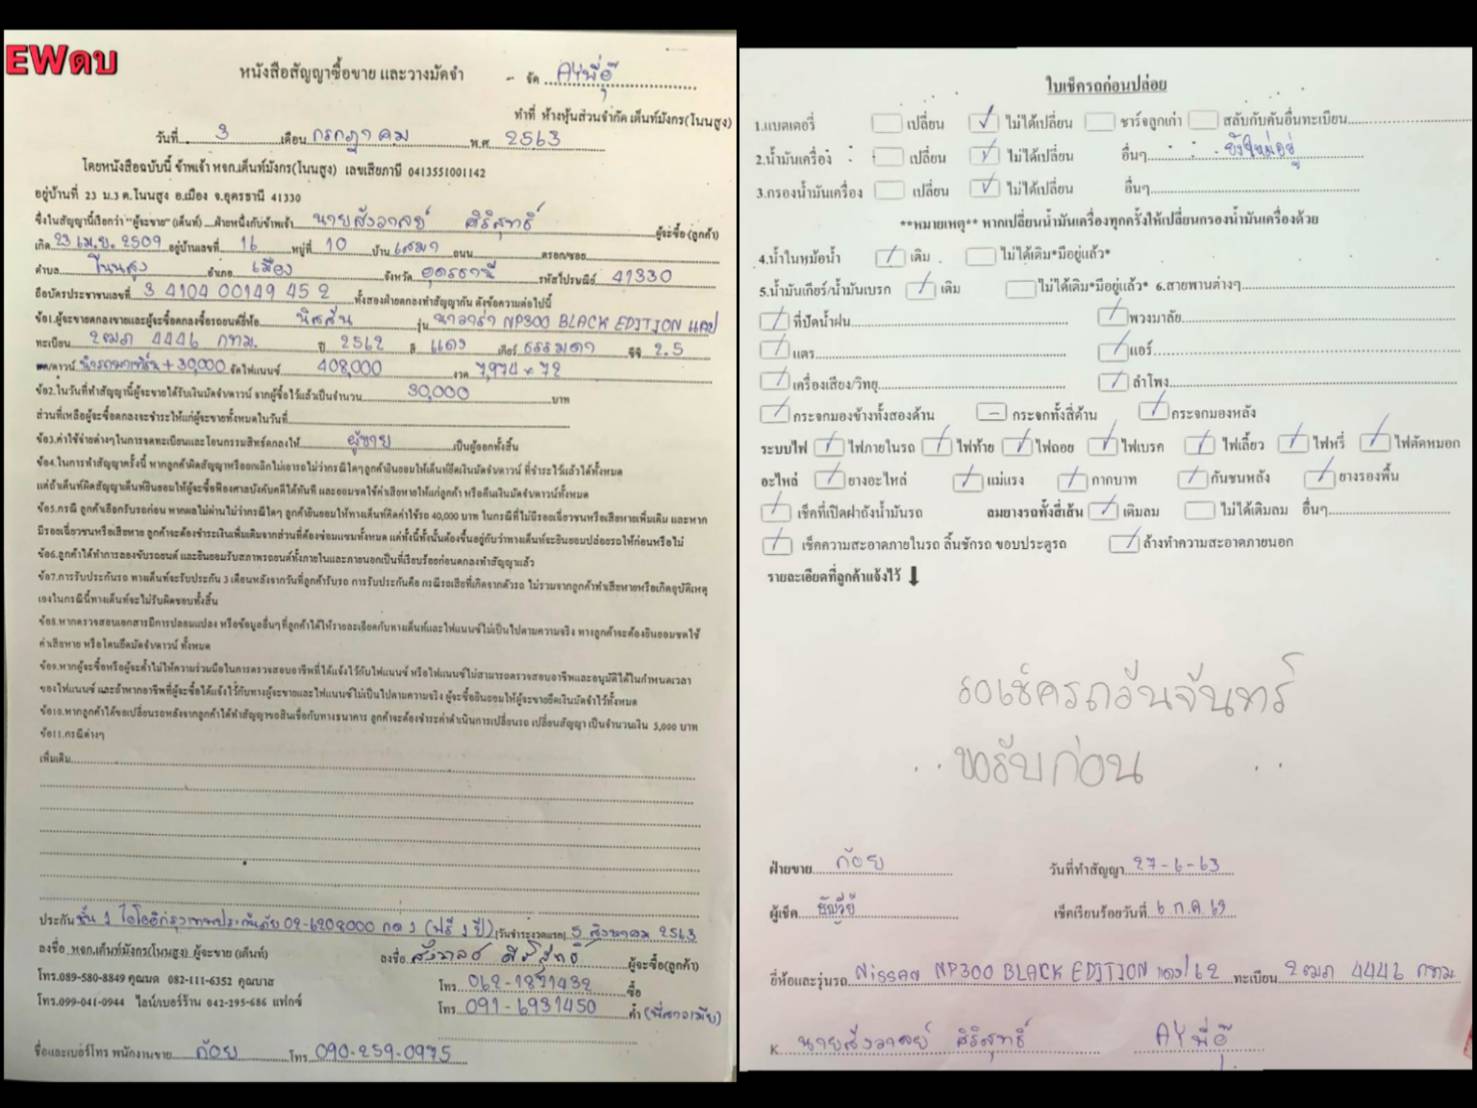 EWดบ
หนังสือสัญญาซื้อขาย และวางมัดจำ - จัด AYพี่อุ๊
ทำที่ ห้างหุ้นส่วนจำกัด เต็นท์มังกร(โนนสูง)
วันที่ 3 เดือน กรกฎาคม พ.ศ. 2563
โดยหนังสือฉบับนี้ ข้าพเจ้า หจก.เต็นท์มังกร(โนนสูง) เลขเสียภาษี 0413551001142
อยู่บ้านที่ 23 ม.3 ต.โนนสูง อ.เมือง จ.อุดรธานี 41330
ซึ่งในสัญญานี้เรียกว่า "ผู้จะขาย" (เต็นท์) ...ฝ่ายหนึ่งกับข้าพเจ้า นาย ศิริสุทธิ์ ผู้จะซื้อ(ลูกค้า)
เกิด 23 เม.ย. 2509 อยู่บ้านเลขที่ 16 หมู่ที่ 10 บ้าน ถนน ตรอก/ซอย
ตำบล โนนสูง อำเภอ เมือง จังหวัด อุดรธานี รหัสไปรษณีย์ 41330
ถือบัตรประชาชนเลขที่ 3 4104 00149 45 2 ทั้งสองฝ่ายตกลงทำสัญญากัน ดังข้อความต่อไปนี้
ข้อ1.ผู้จะขายตกลงขายและผู้จะซื้อตกลงซื้อรถยนต์ยี่ห้อ นิสสัน รุ่น นาวาร่า NP300 BLACK EDITION แคป
ทะเบียน 2ฒภ 4446 กทม. ปี 2562 สี แดง เกียร์ ธรรมดา ซีซี 2.5
+30,000 จัดไฟแนนซ์ 408,000 งวด 7,974 × 72
ข้อ2.ในวันที่ทำสัญญานี้ผู้จะขายได้รับเงินมัดจำ/ดาวน์ จากผู้ซื้อไว้แล้วเป็นจำนวน 30,000 บาท
ส่วนที่เหลือผู้จะซื้อตกลงจะชำระให้แก่ผู้จะขายทั้งหมดในวันที่
ข้อ3.ค่าใช้จ่ายต่างๆในการจดทะเบียนและโอนกรรมสิทธ์ตกลงให้ ผู้ขาย เป็นผู้ออกทั้งสิ้น
ข้อ4.ในการทำสัญญาครั้งนี้ หากลูกค้าผิดสัญญาหรือยกเลิกไม่เอารถไม่ว่ากรณีใดๆลูกค้ายินยอมให้เต็นท์ยึดเงินมัดจำ/ดาวน์ ที่ชำระไว้แล้วได้ทั้งหมด
แต่ถ้าเต็นท์ผิดสัญญาเต็นท์ยินยอมให้ผู้จะซื้อฟ้องศาลบังคับคดีได้ทันที และยอมชดใช้ค่าเสียหายให้แก่ลูกค้า หรือคืนเงินมัดจำ/ดาวน์ทั้งหมด
ข้อ5.กรณี ลูกค้าเลือกรับรถก่อน หากผลไม่ผ่านไม่ว่ากรณีใดๆ ลูกค้ายินยอมให้ทางเต็นท์คิดค่าใช้รถ 40,000 บาท ในกรณีที่ไม่มีรอยเฉี่ยวชนหรือเสียหายเพิ่มเติม และหาก
มีรอยเฉี่ยวชนหรือเสียหาย ลูกค้าจะต้องชำระเงินเพิ่มเติมจากส่วนที่ต้องซ่อมแซมทั้งหมด แต่ทั้งนี้ทั้งนั้นต้องขึ้นอยู่กับว่าทางเต็นท์จะยินยอมปล่อยรถให้ก่อนหรือไม่
ข้อ6.ลูกค้าได้ทำการลองขับรถยนต์ และยินยอมรับสภาพรถยนต์ทั้งภายในและภายนอกเป็นที่เรียบร้อยก่อนตกลงทำสัญญาแล้ว
ข้อ7.การรับประกันรถ ทางเต็นท์จะรับประกัน 3 เดือนหลังจากวันที่ลูกค้ารับรถ การรับประกันคือ กรณีรถเสียที่เกิดจากตัวรถ ไม่รวมจากลูกค้าทำเสียหายหรือเกิดอุบัติเหตุ
เองในกรณีนี้ทางเต็นท์จะไม่รับผิดชอบทั้งสิ้น
ข้อ8.หากตรวจสอบเอกสารมีการปลอมแปลง หรือข้อมูลอื่นๆที่ลูกค้าได้ให้รายละเอียดกับทางเต็นท์และไฟแนนซ์ไม่เป็นไปตามความจริง ทางลูกค้าจะต้องยินยอมชดใช้
ค่าเสียหาย หรือโดนยึดมัดจำ/ดาวน์ ทั้งหมด
ข้อ9.หากผู้จะซื้อหรือผู้จะค้ำไม่ให้ความร่วมมือในการตรวจสอบอาชีพที่ได้แจ้งไว้กับไฟแนนซ์ หรือไฟแนนซ์ไม่สามารถตรวจสอบอาชีพและอนุมัติได้ในกำหนดเวลา
ของไฟแนนซ์ และถ้าหากอาชีพที่ผู้จะซื้อได้แจ้งไว้กับทางผู้จะขายและไฟแนนซ์ไม่เป็นไปตามความจริง ผู้จะซื้อยินยอมให้ผู้จะขายยึดเงินมัดจำไว้ทั้งหมด
ข้อ10.หากลูกค้าได้ขอเปลี่ยนรถหลังจากลูกค้าได้ทำสัญญาขอสินเชื่อกับทางธนาคาร ลูกค้าจะต้องชำระค่าดำเนินการเปลี่ยนรถ เปลี่ยนสัญญา เป็นจำนวนเงิน 5,000 บาท
ข้อ11.กรณีต่างๆ
เพิ่มเติม
ประกัน ชั้น 1 ไอโออิกรุงเทพประกันภัย 02-6208000 กด 1 (ฟรี 1 ปี) (วันชำระงวดแรก) 5 สิงหาคม 2563
ลงชื่อ หจก.เต็นท์มังกร(โนนสูง) ผู้จะขาย (เต็นท์) ลงชื่อ ผู้จะซื้อ(ลูกค้า)
โทร.089-580-8849 คุณมด 082-111-6352 คุณบาส โทร. 062-1891432 ซื้อ
โทร.099-041-0944 ไลน์/เบอร์ร้าน 042-295-686 แฟกซ์ โทร. 091-6931450 ค้ำ
ชื่อและเบอร์โทร พนักงานขาย ก้อย โทร. 090-259-0975
ใบเช็ครถก่อนปล่อย
1.แบตเตอรี่ เปลี่ยน ✓ ไม่ได้เปลี่ยน ชาร์จลูกเก่า สลับกับคันอื่นทะเบียน
2.น้ำมันเครื่อง เปลี่ยน ✓ ไม่ได้เปลี่ยน อื่นๆ ยังใหม่อยู่
3.กรองน้ำมันเครื่อง เปลี่ยน ✓ ไม่ได้เปลี่ยน อื่นๆ
**หมายเหตุ** หากเปลี่ยนน้ำมันเครื่องทุกครั้งให้เปลี่ยนกรองน้ำมันเครื่องด้วย
4.น้ำในหม้อน้ำ / เติม ไม่ได้เติม*มีอยู่แล้ว*
5.น้ำมันเกียร์/น้ำมันเบรก / เติม ไม่ได้เติม*มีอยู่แล้ว* 6.สายพานต่างๆ
/ ที่ปัดน้ำฝน / พวงมาลัย
/ แตร / แอร์
/ เครื่องเสียง/วิทยุ / ลำโพง
/ กระจกมองข้างทั้งสองด้าน - กระจกทั้งสี่ด้าน / กระจกมองหลัง
ระบบไฟ / ไฟภายในรถ / ไฟท้าย / ไฟถอย / ไฟเบรค / ไฟเลี้ยว / ไฟหรี่ / ไฟตัดหมอก
อะไหล่ / ยางอะไหล่ / แม่แรง / กากบาท / กันชนหลัง / ยางรองพื้น
/ เช็คที่เปิดฝาถังน้ำมันรถ ลมยางรถทั้งสี่เส้น / เติมลม ไม่ได้เติมลม อื่นๆ
/ เช็คความสะอาดภายในรถ ลิ้นชักรถ ขอบประตูรถ / ล้างทำความสะอาดภายนอก
รายละเอียดที่ลูกค้าแจ้งไว้ ⬇
รอเช็ครถวันจันทร์
ขอรับก่อน
ฝ่ายขาย ก้อย วันที่ทำสัญญา 27-6-63
ผู้เช็ค เช็คเรียบร้อยวันที่ 6 ก.ค 63
ยี่ห้อและรุ่นรถ Nissan NP300 BLACK EDITION แดง/62 ทะเบียน 2ฒภ 4446 กทม.
K นาย ศิริสุทธิ์ AYพี่อุ๊